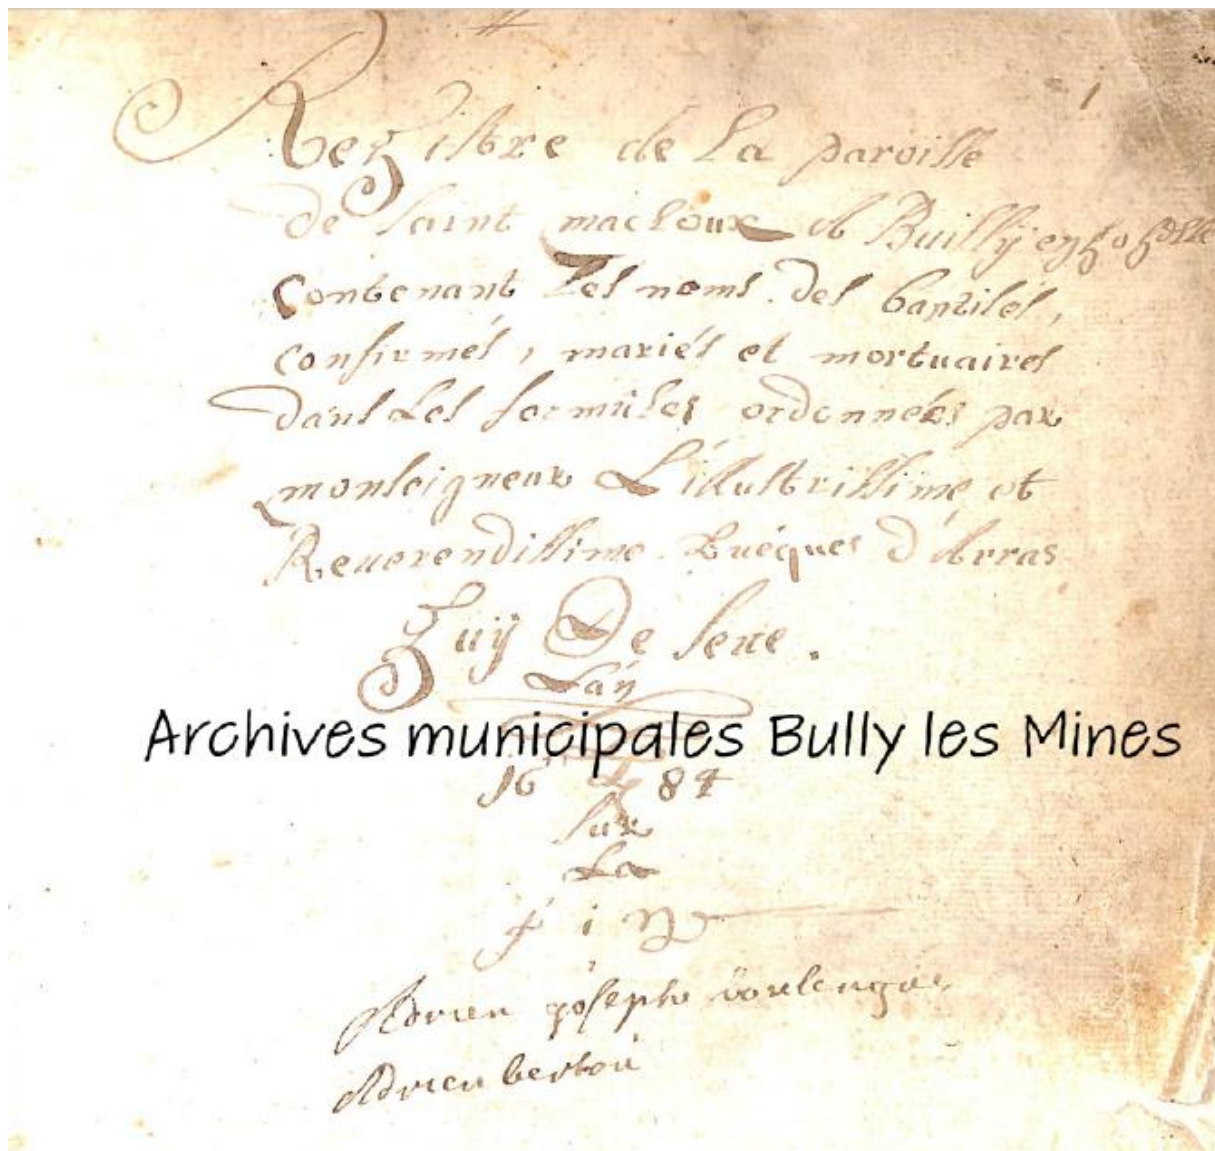 1
Regiſtre de La paroiſſe
de ſaint macloux d Builly en gohelle
contenant Les noms des baptiſés,
confirmés, mariés et mortuaires
dans Les formules ordonneés par
monſeigneur L'illuſtriſſime et
Reuerendiſſime Euéques d'Arras
Guÿ De ſeue.
L'an
Archives municipales Bully les Mines
16 84
ſur
La
fin
Adrien joſeph boulengié
Adrien bertou